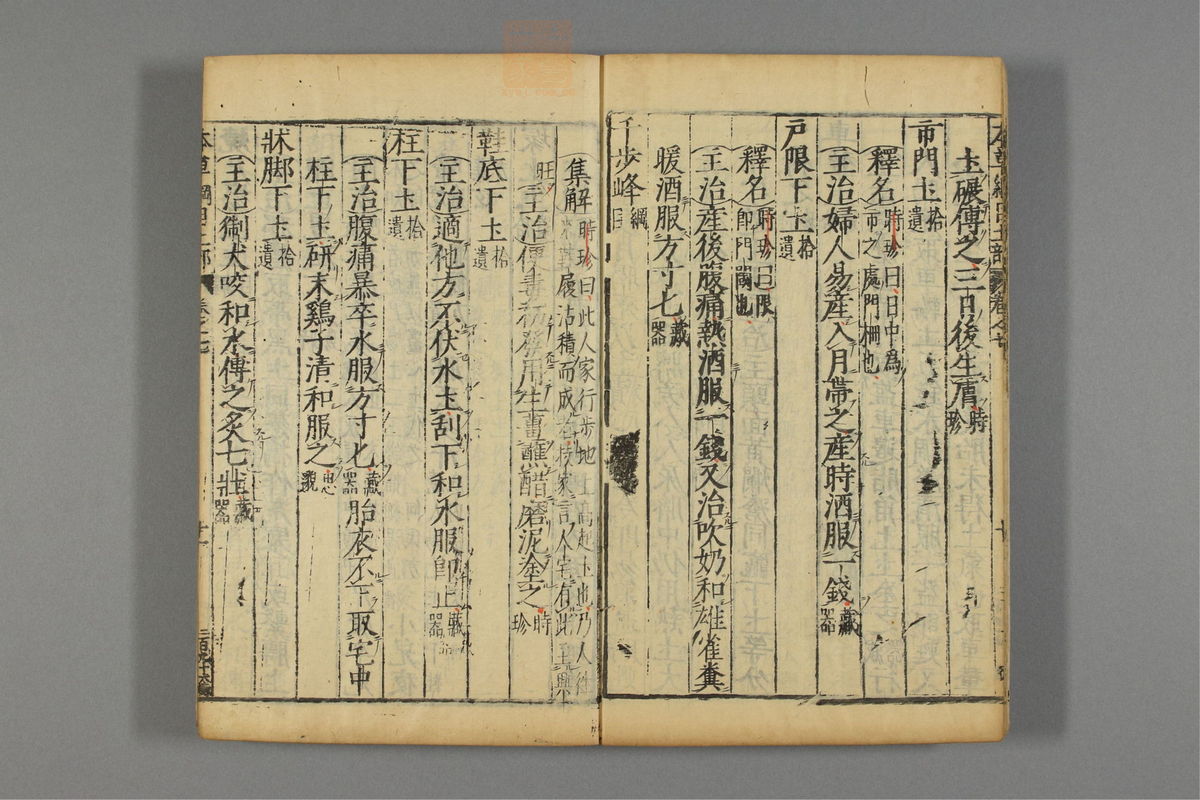 土碾傅之三日後生膚時珍
市門土拾遺
釋名時珍曰日中爲市之處門柵也
主治婦人易產入月帶之產時酒服一錢藏器
戶限下土拾遺
釋名時珍曰限即門閾也
主治產後腹痛熱酒服一錢又治吹奶和雄雀糞
暖酒服方寸匕藏器
千步峰綱目
集解時珍曰此人家行步地上高起土也乃人往來鞋履沾積而成技家言人宅有此主興旺
主治便毒初發用生薑蘸醋磨泥塗之時珍
鞋底下土拾遺
主治適他方不伏水土刮下和水服即止藏器
柱下土拾遺
主治腹痛暴卒水服方寸匕藏器胎衣不下取宅中
柱下土研末鷄子清和服之思邈
牀脚下土拾遺
主治猘犬咬和水傅之炙七壯藏器